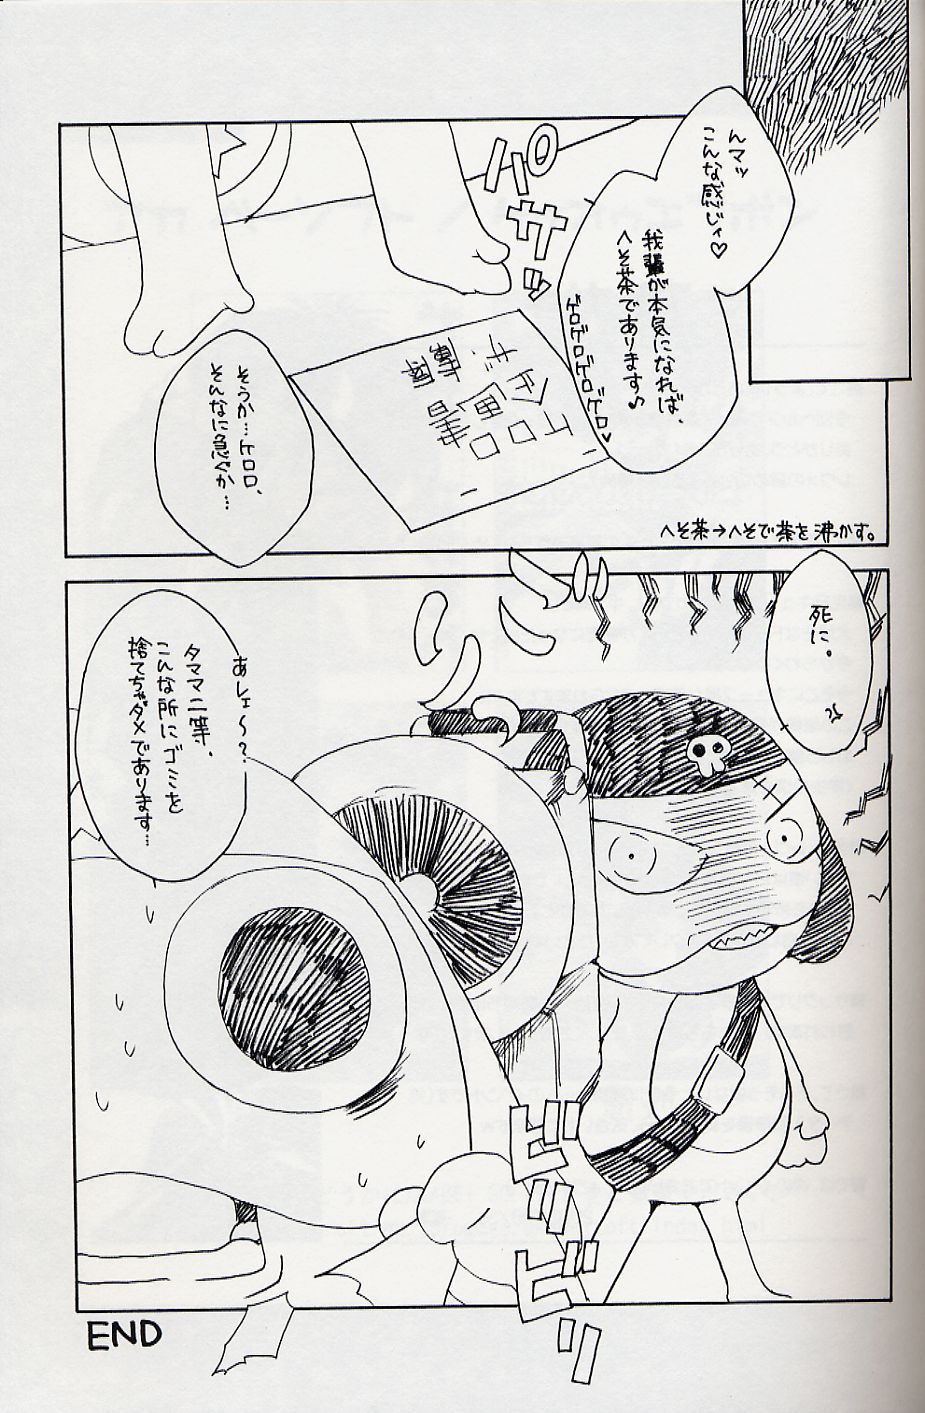 んマッ
こんな感じィ♡
我輩が本気になれば、
へそ茶であります♪
ゲロゲロゲロゲロ♥
パサッ
ケロロ
企画書
そうか…ケロロ、
そんなに急ぐか…
へそ茶→へそで茶を沸かす。
死に。
あレェ〜?
タママ二等、
こんな所にゴミを
捨てちゃダメであります…
ビビビッ
END